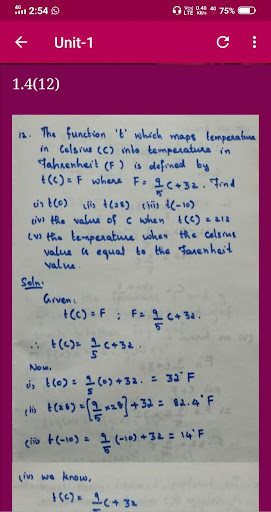 4G 2:54 VoD LTE 0.40 KB/s 4G 75%
Unit-1
1.4(12)
12. The function 't' which maps temperature
in Celsius (C) into temperature in
Fahrenheit (F) is defined by
t(C) = F where F = 9/5 C + 32. Find
(i) t(0) (ii) t(28) (iii) t(-10)
(iv) the value of C when t(C) = 212
(v) the temperature when the Celsius
value is equal to the Farenheit
value.
Soln:
Given:
t(C) = F ; F = 9/5 C + 32.
∴ t(C) = 9/5 C + 32.
Now,
(i) t(0) = 9/5 (0) + 32. = 32°F
(ii) t(28) = [9/5 × 28] + 32 = 82.4°F
(iii) t(-10) = 9/5 (-10) + 32 = 14°F
(iv) we know,
t(C) = 9/5 C + 32